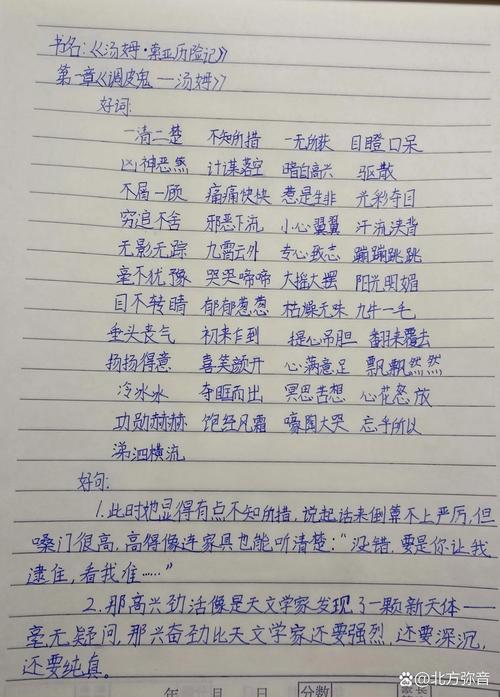 书名:《汤姆·索亚历险记》
第一章《调皮鬼—汤姆》
好词:
一清二楚 不知所措 一无所获 目瞪口呆
凶神恶煞 计谋落空 暗自高兴 驱散
不屑一顾 痛痛快快 惹是生非 光彩夺目
穷追不舍 邪恶下流 小心翼翼 汗流浃背
无影无踪 九霄云外 专心致志 蹦蹦跳跳
毫不犹豫 哭哭啼啼 大摇大摆 阳光明媚
目不转睛 郁郁葱葱 枯燥无味 九牛一毛
垂头丧气 初来乍到 提心吊胆 翻来覆去
扬扬得意 喜笑颜开 心满意足 飘飘然然
冷冰冰 夺眶而出 冥思苦想 心花怒放
功勋赫赫 饱经风霜 嚎啕大哭 忘乎所以
涕泗横流
好句:
1.此时她显得有点不知所措,说起话来倒算不上严厉,但
嗓门很高,高得像连家具也能听清楚:“没错,要是你让我
逮住,看我准……”
2.那高兴劲活像是天文学家发现了一颗新天体——
毫无疑问,那兴奋劲比天文学家还要强烈,还要深沉,
还要纯真。
年 月 日 分数 家长
@北方弥音